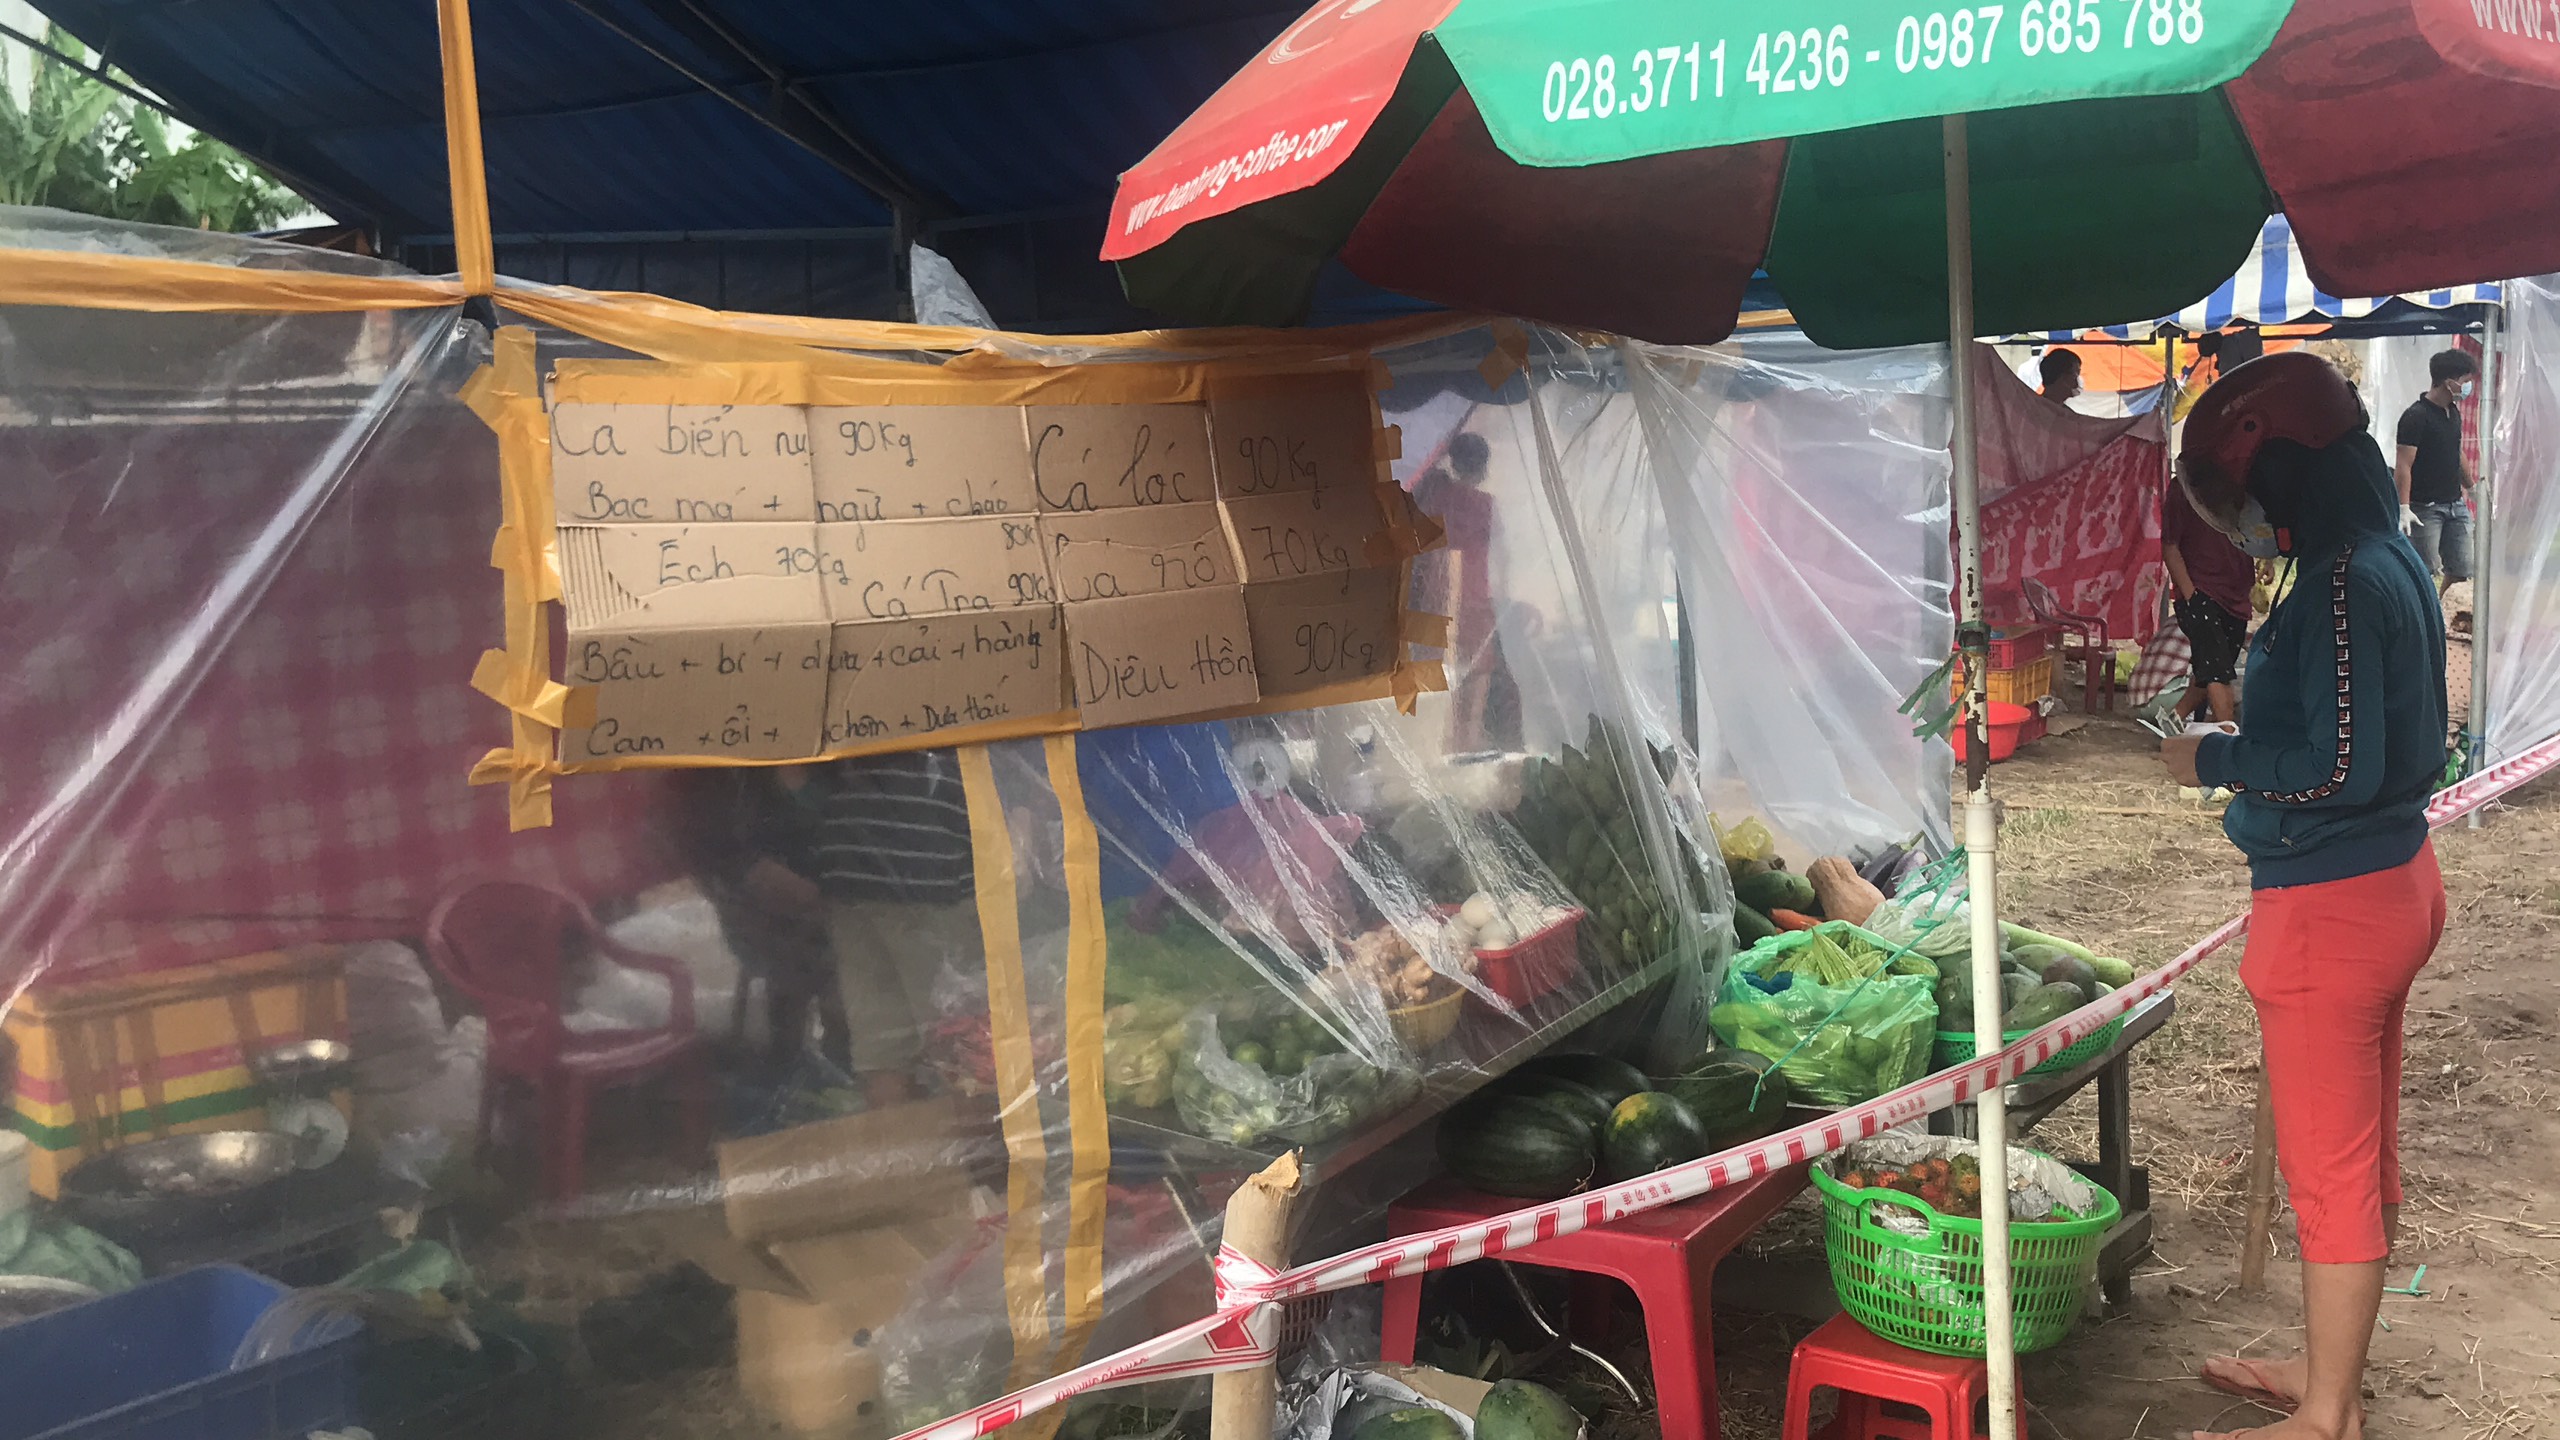 028.3711 4236 - 0987 685 788
www.tuantrung-coffee.com
www.t
Cá biển nụ 90Kg
Bạc má + ngừ + cháo
80K
Ếch 70Kg
Cá Tra 90Kg
Bầu + bí + dưa + cải + hành
Cam + ổi + chôm + Dưa Hấu
Cá lóc 90Kg
Cá rô 70Kg
Diêu Hồn 90Kg